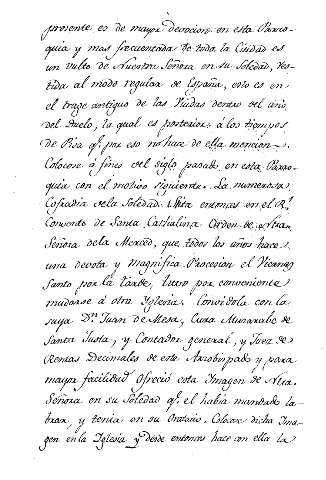 presente es de mayor devocion en esta Parro-
quia y mas frecuentada de toda la Ciudad es
un vulto de Nuestra Señora en su Soledad, ves-
tida al modo regular de España, esto es en
el trage antiguo de las Viudas dentro del año
del Duelo, la qual es posterior á los tiempos
de Pisa qe. por eso no hace de ella mencion.
Colocose á fines del siglo pasado en esta Parro-
quia con el motivo siguiente. La numerosa
Cofradia de la Soledad sita entonces en el Rl.
Convento de Santa Cathalina Orden de Ntra.
Señora de la Merced, que todos los años hace
una devota y magnifica Procesion el Viernes
Santo por la tarde, tuvo por conveniente
mudarse á otra Iglesia. Convidola con la
suya Dn. Juan de Mesa, Cura Muzarabe de
Santa Justa, y Contador general, y Juez de
Rentas Decimales de este Arzobispado y para
mayor facilidad ofreció esta Imagen de Ntra.
Señora en su Soledad qe. el habia mandado la-
brar, y tenia en su Oratorio. Coloco dicha Ima-
gen en la Iglesia y desde entonces hace con ella la